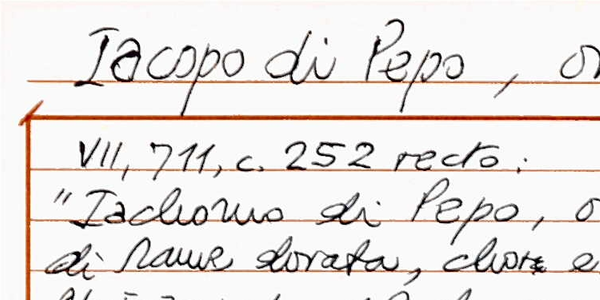 Iacopo di Pepo, or
VII, 711, c. 252 recto:
"Iachomo di Pepo, o
di rame dorata, chore e